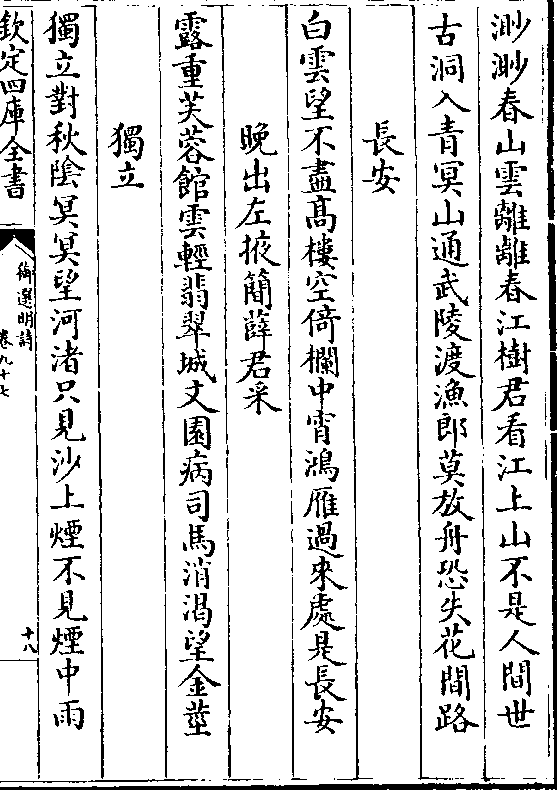 渺渺春山雲離離春江樹君看江上山不是人間世
古洞入青冥山通武陵渡漁郎莫放舟恐失花間路
長安
白雲望不盡髙樓空倚欄中宵鴻雁過來處是長安
晚出左掖簡薛君采
露重芙蓉館雲輕翡翠城文園病司馬消渴望金莖
獨立
獨立對秋陰冥冥望河渚只見沙上煙不見煙中雨
欽定四庫全書
御選明詩
卷九十七
十八